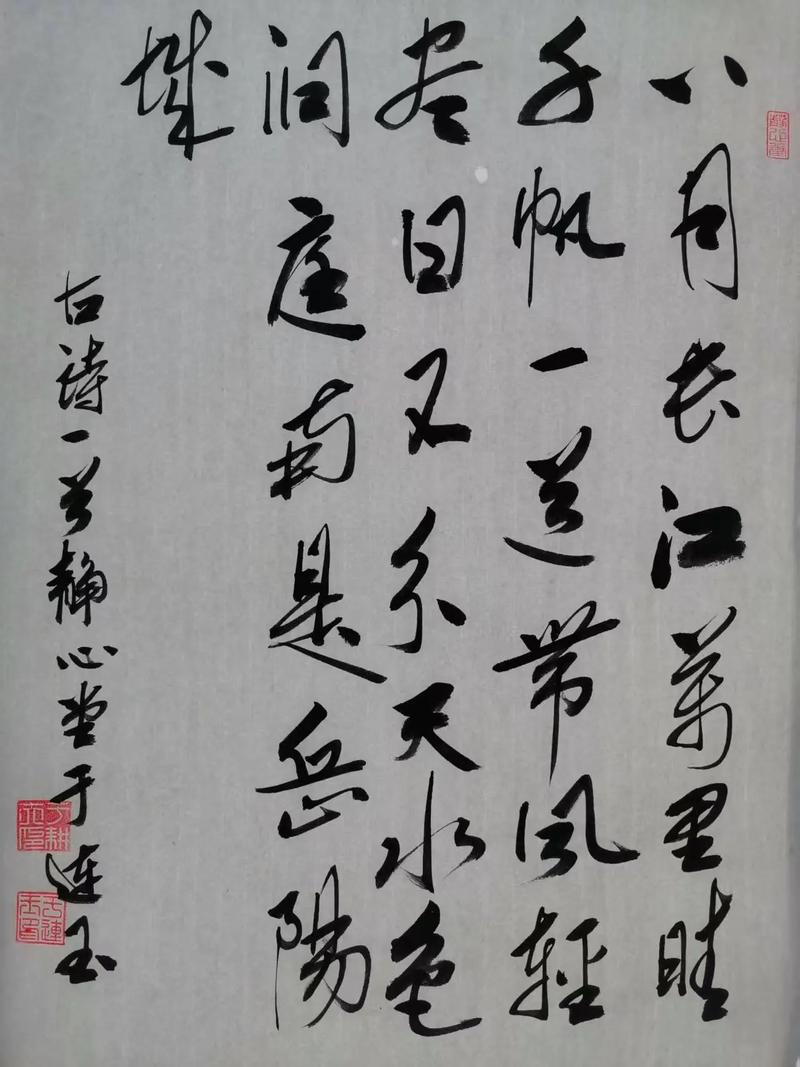 八月长江萬里晴
千帆一道带风輕
尽日不分天水色
洞庭南是岳陽
城
古诗一首静心堂于连玉